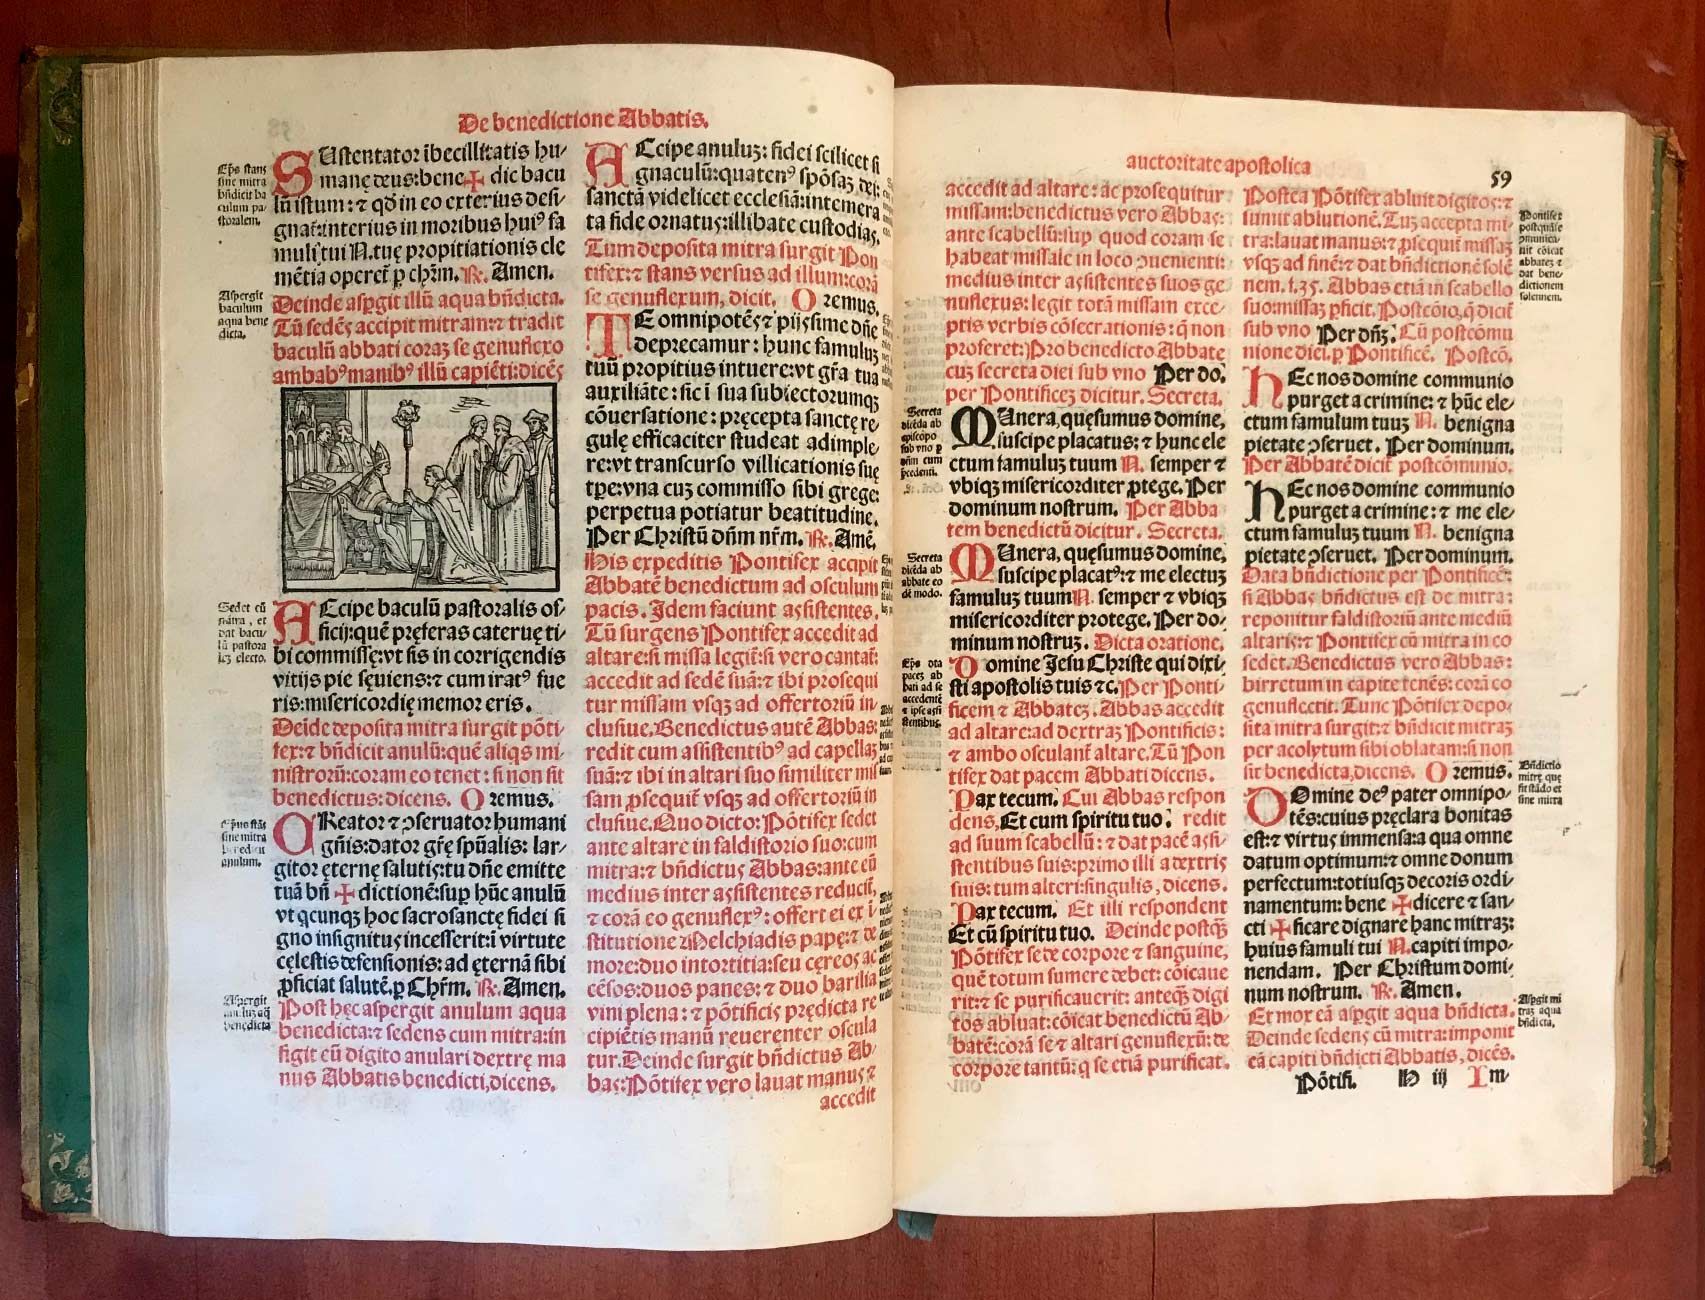 De benedictione Abbatis.
Ep̃s stans
sine mitra
bñdicit ba
culum pa-
storalem.
SUstentator ĩbecillitatis hu-
manę deus: bene ✠ dic bacu
lũ istum: ⁊ qđ in eo exterius desi-
gnat̃: interius in moribus huiꝰ fa
muli tui N. tuę propitiationis cle
mẽtia operet̃ ꝑ chr̃m. ℟. Amen.
Aspergit
baculum
aqua bene
dicta.
Deinde asꝑgit illũ aqua bñdicta.
Tũ sedẽs accipit mitram: ⁊ tradit
baculũ abbati coraꝫ se genuflexo
ambabꝰ manibꝰ illũ capiẽti: dicẽs
Sedet cũ
mitra, et
dat bacu-
lũ pastora
leꝫ electo.
ACcipe baculũ pastoralis of-
ficij: quẽ pręferas cateruę ti-
bi commissę: vt sis in corrigendis
vitijs pie sęuiens: ⁊ cum iratꝰ fue
ris: misericordię memor eris.
Deĩde deposita mitra surgit põti-
fex: ⁊ bñdicit anulũ: quẽ aliqs mi-
nistrorũ: coram eo tenet: si non sit
benedictus: dicens. Oremus.
sine mitra
anulum.
CReator ⁊ ꝯseruator humani
gñis: dator gr̃ę spũalis: lar-
gitor ęternę salutis: tu dñe emitte
tuã bñ ✠ dictionẽ: sup hũc anulũ
vt qcunqꝫ hoc sacrosanctę fidei si
gno insignitus incesserit: ĩ virtute
cęlestis defensionis: ad ęternã sibi
ꝓficiat salutẽ. ꝑ Chr̃m. ℟. Amen.
Aspergit
anuluꝫ aq̃
benedicta
Post hęc aspergit anulum aqua
benedicta: ⁊ sedens cum mitra: in
figit eũ digito anulari dextrę ma
nus Abbatis benedicti, dicens.
ACcipe anuluꝫ: fidei scilicet si
gnaculũ: quatenꝰ spõsaꝫ dei:
sanctã videlicet ecclesiã: intemera
ta fide ornatus: illibate custodias.
Tum deposita mitra surgit Pon
tifex: ⁊ stans versus ad illum: corã
se genuflexum, dicit. Oremus.
TE omnipotẽs ⁊ pijssime dñe
deprecamur: hunc famuluꝫ
tuũ propitius intuere: vt gr̃a tua
auxiliãte: sic ĩ sua subiectorumqꝫ
cõuersatione: pręcepta sanctę re-
gulę efficaciter studeat adimple-
re: vt transcurso villicationis suę
tꝑe: vna cuꝫ commisso sibi grege:
perpetua potiatur beatitudine.
Per Christũ dñm nr̃m. ℟. Amẽ.
His expeditis Pontifex accipit
Abbatẽ benedictum ad osculum
pacis. Idem faciunt assistentes.
Tũ surgens Pontifex accedit ad
altare: si missa legit̃: si vero cantat̃:
accedit ad sedẽ suã: ⁊ ibi prosequi
tur missam vsqꝫ ad offertoriũ in
clusiue. Benedictus autẽ Abbas:
redit cum assistentibꝰ ad capellaꝫ
suã: ⁊ ibi in altari suo similiter mis
sam ꝓsequit̃ vsqꝫ ad offertoriũ in
clusiue. Quo dicto: Põtifex sedet
ante altare in faldistorio suo: cum
mitra: ⁊ bñdictus Abbas: ante eũ
medius inter assistentes reducit̃,
⁊ corã eo genuflexꝰ: offert ei ex ĩ-
stitutione Melchiadis papę: ⁊ de
more: duo intortitia: seu cereos ac
cẽsos: duos panes: ⁊ duo barilia
vini plena: ⁊ põtificis prędicta re
cipiẽtis manũ reuerenter oscula
tur. Deinde surgit bñdictus Ab-
bas: Põtifex vero lauat manus ⁊
accedit
auctoritate apostolica
59
accedit ad altare: ac prosequitur
missam: benedictus vero Abbas:
ante scabellũ: sup quod coram se
habeat missale in loco ꝯuenienti:
medius inter assistentes suos ge-
nuflexus: legit totã missam exce-
ptis verbis cõsecrationis: q̃ non
proferet: Pro benedicto Abbate
cuꝫ secreta diei sub vno Per do.
per Pontificeꝫ dicitur. Secreta.
Secreta
dicẽda ab
episcopo
sub vno ꝑ
dñm cum
p̃cedenti.
MUnera, quęsumus domine,
suscipe placatus: ⁊ hunc ele
ctum famuluꝫ tuum N. semper ⁊
vbiqꝫ misericorditer ꝓtege. Per
dominum nostrum. Per Abba
tem benedictũ dicitur. Secreta.
Secreta
dicẽda ab
abbate eo
dẽ modo.
MUnera, quęsumus domine,
suscipe placatꝰ: ⁊ me electuꝫ
famuluꝫ tuum N. semper ⁊ vbiqꝫ
misericorditer protege. Per do-
minum nostruꝫ. Dicta oratione.
Ep̃s ota
paceꝫ ab
bati ad se
accedentẽ
⁊ ipse assi
stentibus.
Domine Jesu Christe qui dixi-
sti apostolis tuis ⁊c. Per Ponti-
ficem ⁊ Abbateꝫ. Abbas accedit
ad altare: ad dextraꝫ Pontificis:
⁊ ambo osculant̃ altare. Tũ Pon
tifex dat pacem Abbati dicens.
Pax tecum. Cui Abbas respon
dens, Et cum spiritu tuo: redit
ad suum scabellũ: ⁊ dat pacẽ assi-
stentibus suis: primo illi a dextris
suis: tum alteri: singulis, dicens.
Pax tecum. Et illi respondent
Et cũ spiritu tuo. Deinde postqꝫ
Põtifex se de corpore ⁊ sanguine,
quẽ totum sumere debet: cõicaue
rit: ⁊ se purificauerit: anteqꝫ digi
tos abluat: cõicat benedictũ Ab-
batẽ: corã se ⁊ altari genuflexũ: de
corpore tantũ: q se etiã purificat.
Postea Põtifex abluit digitos: ⁊
sumit ablutionẽ. Tuꝫ accepta mi-
tra: lauat manus: ⁊ ꝓsequit̃ missaꝫ
vsqꝫ ad finẽ: ⁊ dat bñdictionẽ solẽ
nem. f. 35. Abbas etiã in scabello
suo: missaꝫ ꝑficit. Postcõio, q̃ dicit̃
sub vno Per dñꝫ. Cũ postcõmu
nione diei. ꝑ Pontificẽ. Postcõ.
Pontifex
postquã se
ꝯmunica-
uit cõicat
abbateꝫ ⁊
dat bene-
dictionem
solennem.
HEc nos domine communio
purget a crimine: ⁊ hũc ele-
ctum famulum tuuꝫ N. benigna
pietate ꝯseruet. Per dominum.
Per Abbatẽ dicit̃ postcõmunio.
HEc nos domine communio
purget a crimine: ⁊ me ele-
ctum famuluꝫ tuum N. benigna
pietate ꝯseruet. Per dominum.
Data bñdictione per Pontificẽ:
si Abbas bñdictus est de mitra:
reponitur faldistoriũ ante mediũ
altaris: ⁊ Pontifex cũ mitra in eo
sedet. Benedictus vero Abbas:
birretum in capite tenẽs: corã eo
genuflectit. Tunc Põtifex depo-
sita mitra surgit: ⁊ bñdicit mitraꝫ
per acolytum sibi oblatam: si non
sit benedicta, dicens. Oremus.
Bñdictio
mitrę quę
fit stãdo et
sine mitra
DOmine deꝰ pater omnipo-
tẽs: cuius pręclara bonitas
est: ⁊ virtus immensa: a qua omne
datum optimum: ⁊ omne donum
perfectum: totiusqꝫ decoris ordi-
namentum: bene ✠ dicere ⁊ san-
cti ✠ ficare dignare hanc mitraꝫ:
huius famuli tui N. capiti impo-
nendam. Per Christum domi-
num nostrum. ℟. Amen.
Aspgit mi
traꝫ aqua
bñdicta.
Et mox eã aspgit aqua bñdicta.
Deinde sedens cũ mitra: imponit
eã capiti bñdicti Abbatis, dicẽs.
Põtifi. H iij Im-